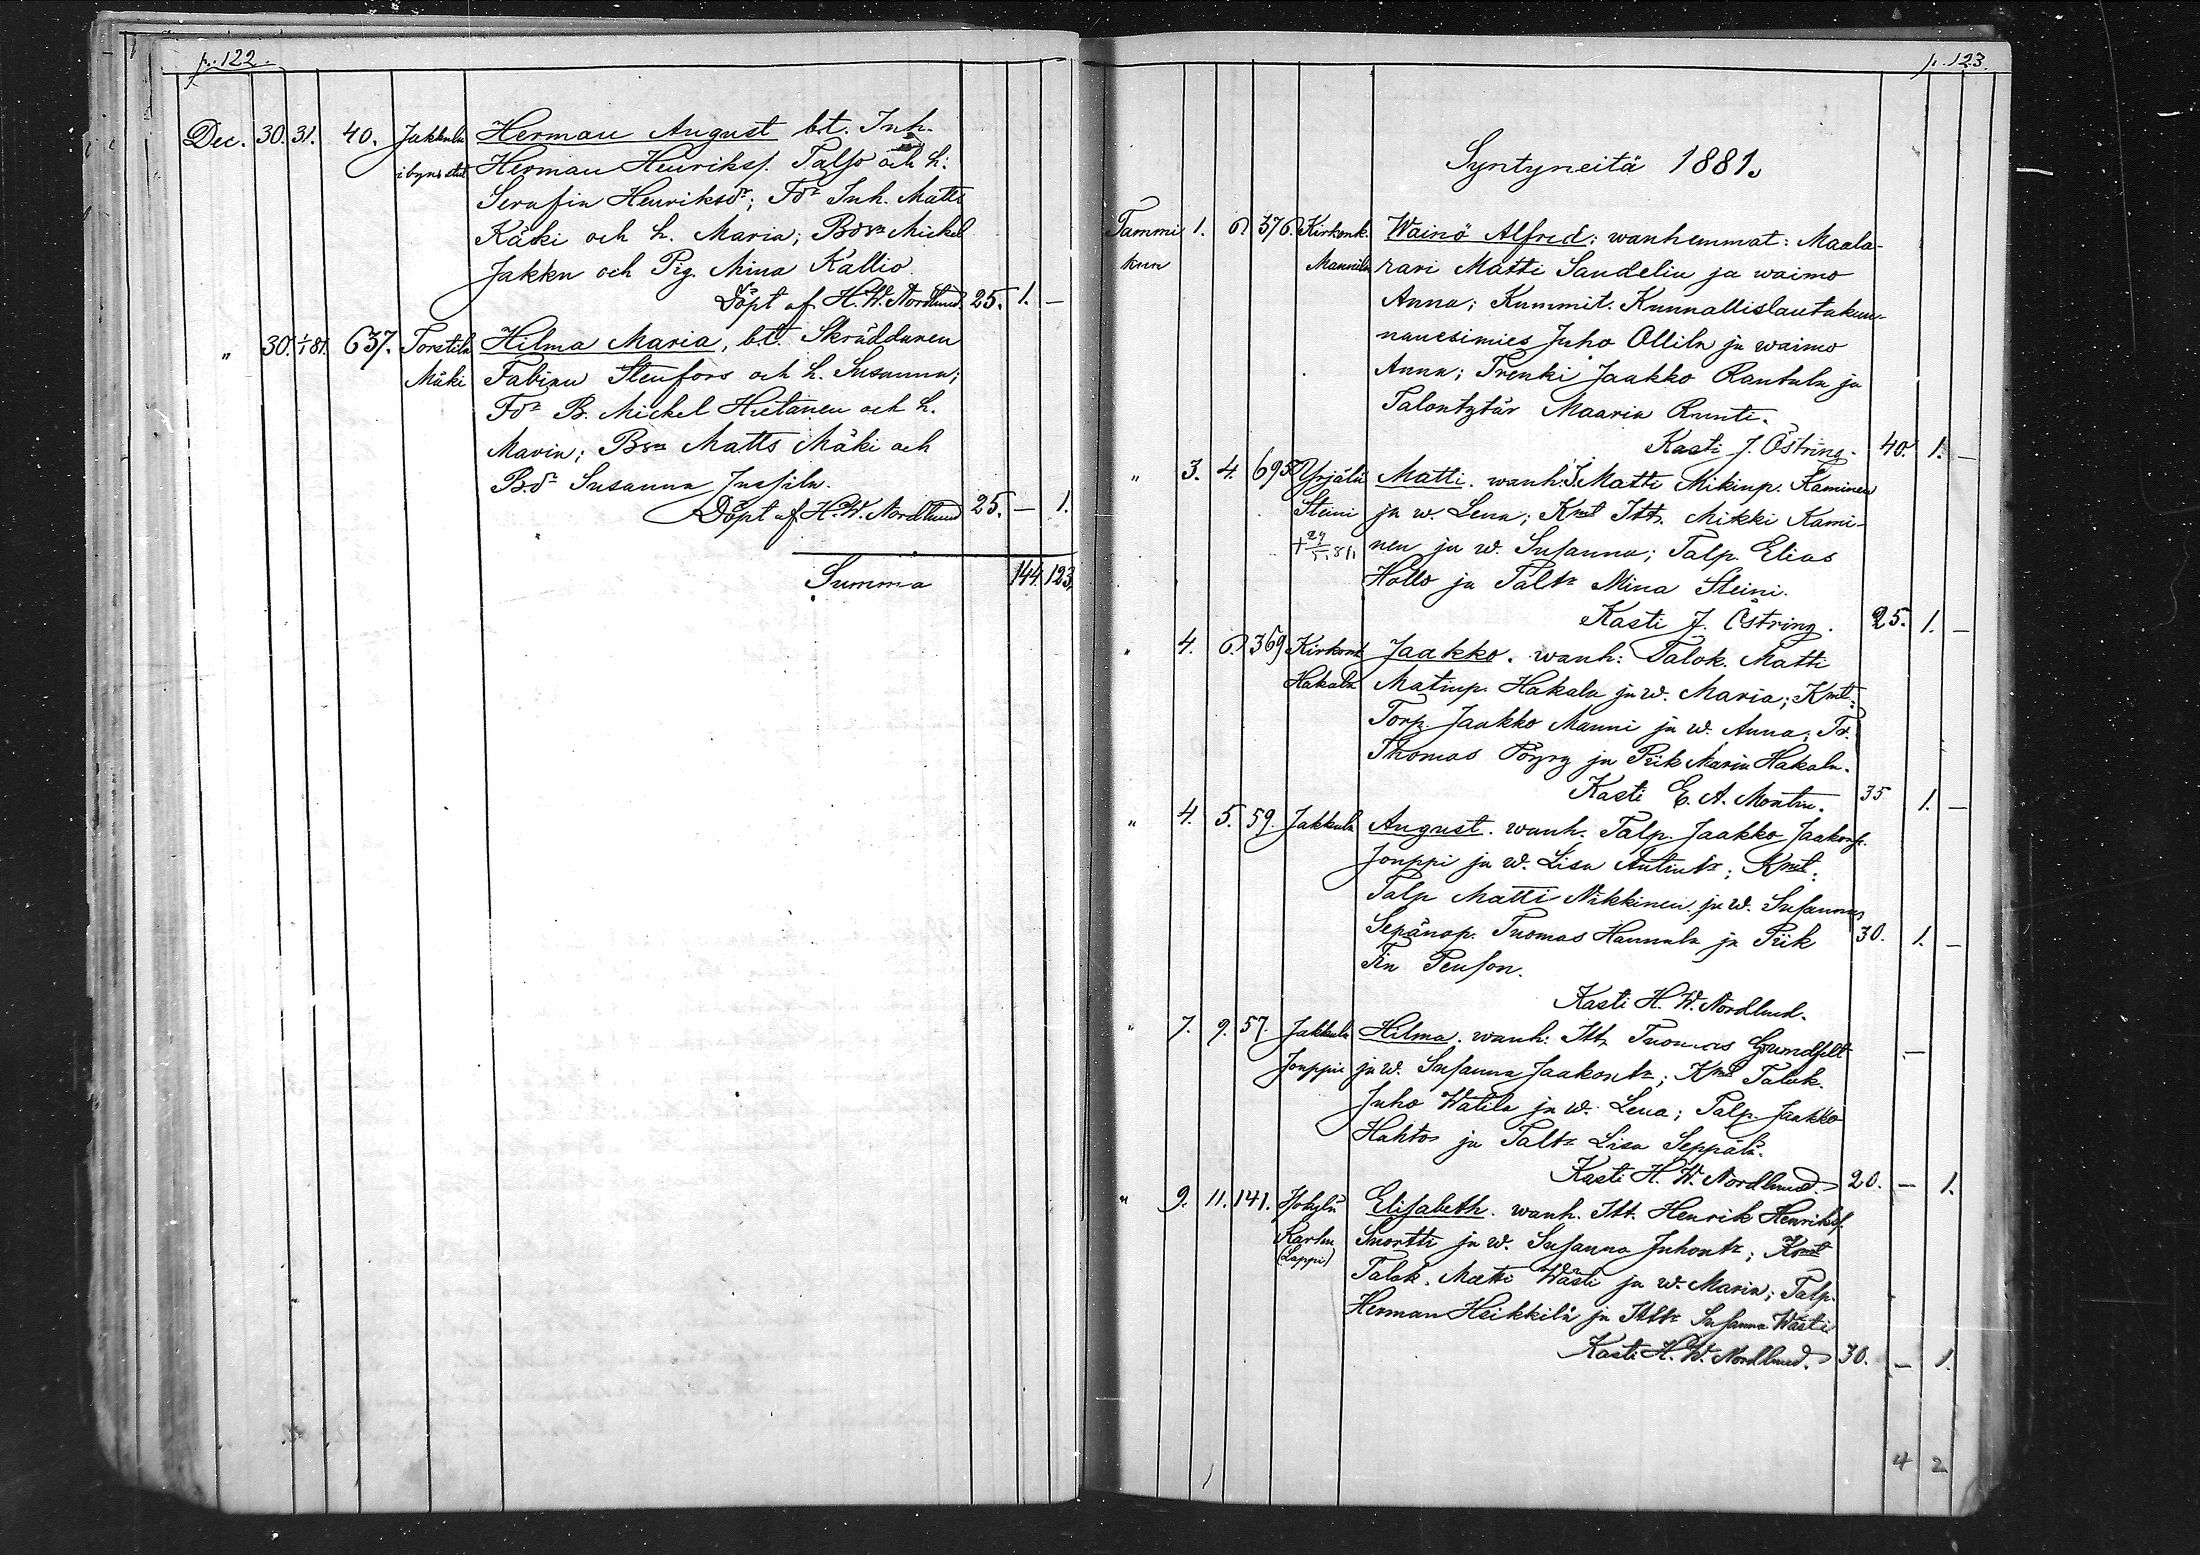 p. 122.
Dec. 30. 31. 40. Jakkula Herman August b.t. Inh.
i byns Herman Henrikss. Talso och h:
Serafia Henriksdr; Fdr Inh. Matts
Käki och h. Maria; Bdsn Mickel
Jakku och Pig. Mina Kallio.
Döpt af H. W. Nordlund. 25. 1. —
" 30. 1/1 81. 637. Torstila Hilma Maria, b.t. Skräddaren
Mäki Fabian Stenfors och h. Susanna;
Fdr B. Mickel Hietanen och h.
Maria; Bsn Matts Mäki och
Bdr Susanna Jussila.
Döpt af H. W. Nordlund 25. — 1.
Summa 144. 123.
p. 123.
Syntyneitä 1881.
Tammi 1. 6 376. Kirkonk. Wäinö Alfred; wanhemmat: Maala-
kuu Mannila rari Matti Sandelin ja waimo
Anna; Kummit. Kunnallislautakun-
nanesimies Juho Ollila ja waimo
Anna; Trenki Jaakko Rantala ja
Talontytär Maaria Runti.
Kasti J. Östring. 40. 1. —
" 3. 4. 695 Yrjälä Matti. wanh: J. Matti Mikinp. Kaminen
Steini ja w. Lena; Kmt Itt. Mikki Kami-
† 29/1.81. nen ja w. Susanna; Talp. Elias
Hollo ja Taltr Mina Steini.
Kasti J. Östring. 25. 1. —
" 4. 6. 369 Kirkonk Jaakko. wanh: Talok. Matti
Hakala Matinp. Hakala ja w. Maria; Kmt:
Torp. Jaakko Manni ja w. Anna; Tr.
Thomas Pöyry ja Piik Maria Hakala.
Kasti E. A. Montin. 35 1. —
" 4. 5. 59. Jakkula August. wanh. Talp. Jaakko Jaakonp.
Jouppi ja w. Lisa Antintr; Kmt:
Talp Matti Nikkinen ja w. Susanna
Sepänop. Tuomas Hannula ja Piik 30. 1. —
Fia Penson.
Kasti H. W. Nordlund.
" 7. 9. 57. Jakkula Hilma. wanh: Itt. Tuomas Grundfelt —
Jouppi ja w. Susanna Jaakontr; Kmt Talok.
Juho Watila ja w. Lena; Talp. Jaakko
Hahto ja Taltr Lisa Seppälä.
Kasti H. W. Nordlund. 20. — 1.
" 9. 11. 141. Elisabeth. wanh. Itt. Henrik Henrikss.
Karhu Snortti ja w. Susanna Juhontr; Kmt
(Lappi) Talok. Matti Wästi ja w. Maria; Talp.
Herman Heikkilä ja Ittr Susanna Wästi
Kasti H. W. Nordlund. 30. — 1.
4 2